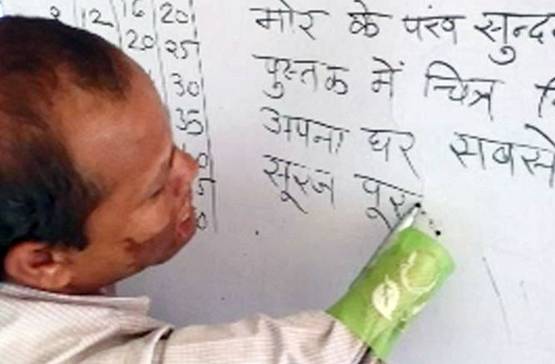 8 12 16 20
20 25
30
35
मोर के पंख सुन्द
पुस्तक में चित्र
अपना घर सबसे
सूरज पूर